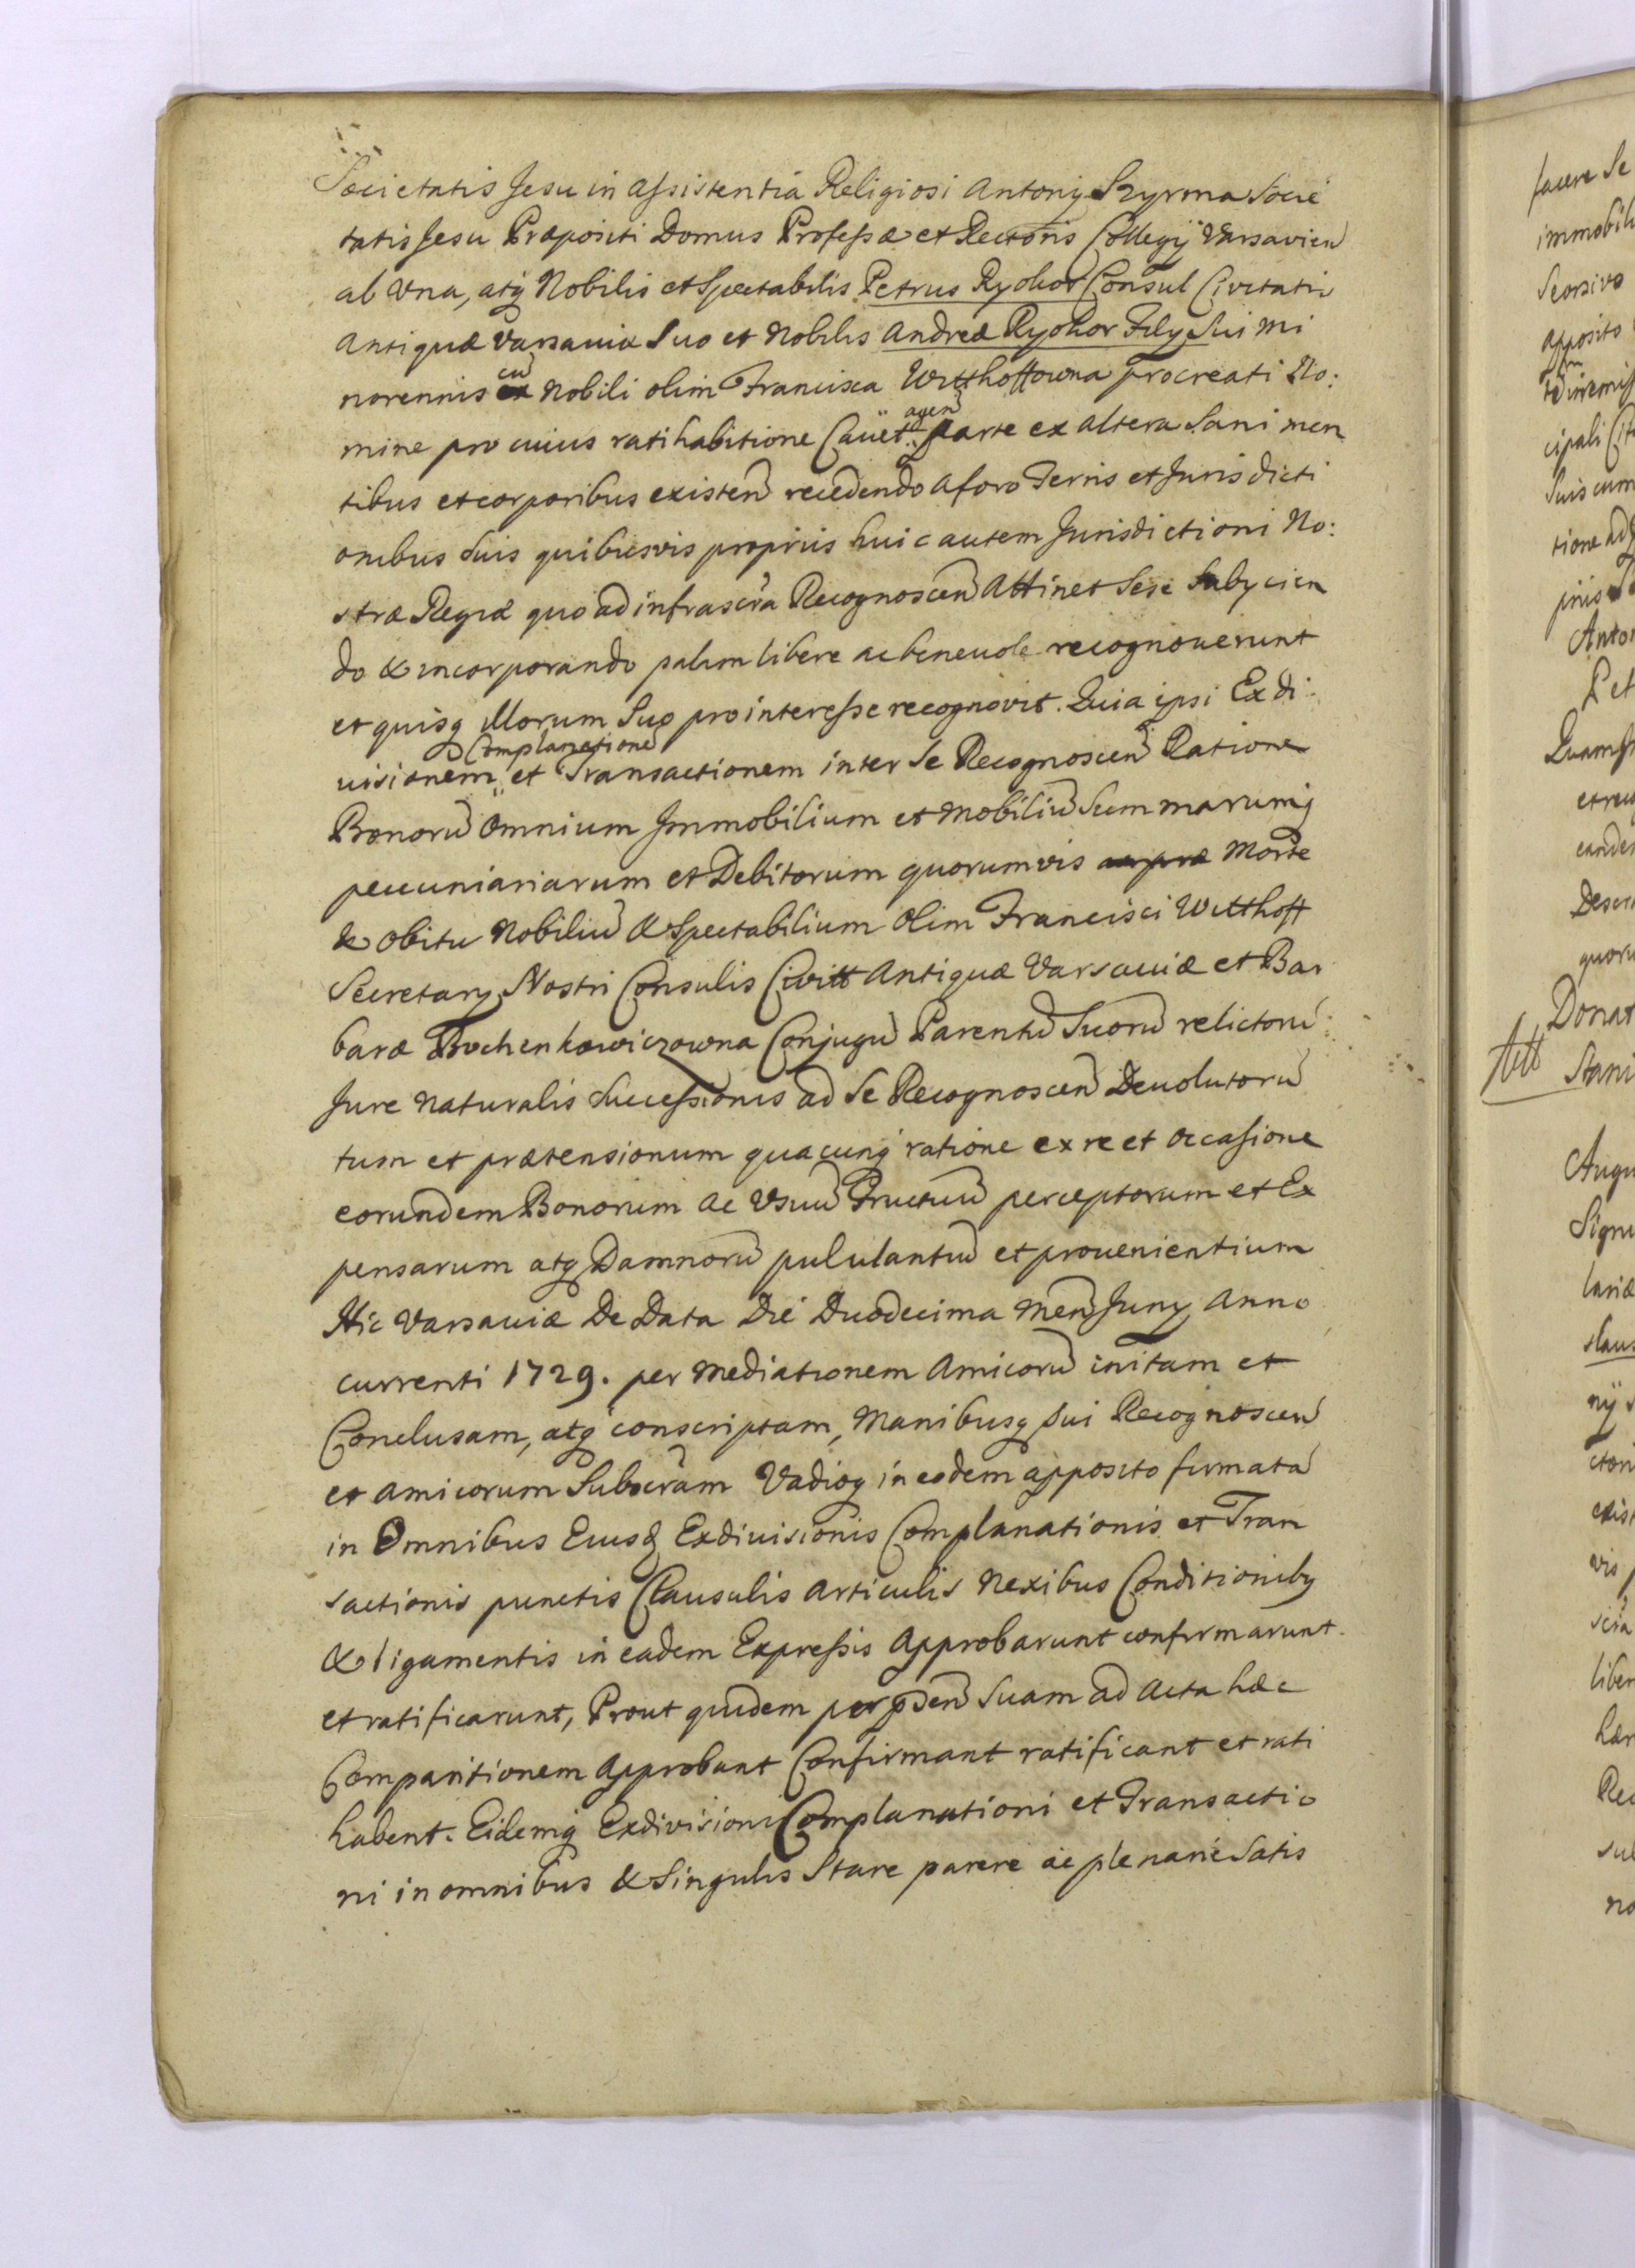 Societatis Jesu in assistentia Religiosi Antonij Szyrma Socie
tatis Jesu Præpositi Domus Professæ et Rectoris Collegij Varsavien
ab Una, atq Nobilis et Spectabilis Petrus Ryohor Consul Civitatis
Antiquæ Varsauiæ Suo et Nobilis Andreæ Ryohor Filij Sui mi
cu
norennis ex Nobili olim Francisca Witthoffowna procreati No:
agen
mine pro cuius ratihabitione Cauet. parte ex altera Sani men
tibus et corporibus existen recedendo a foro Terris et Jurisdicti
onibus Suis quibusvis proprijs huic autem Jurisdictioni No:
stræ Regiæ quo ad infrascra Recognoscen Attinet Sese Subycien
do & incorporando palam libere ac beneuole recognouerunt
et quisq Illorum Suo pro interesse recognovit. Quia ipsi Exdi:
Complanatione
uisionem et Transactionem inter Se Recognoscen Ratione
Bonoru Omnium Immobilium et Mobiliu Summarumq
pecuniariarum et Debitorum quorumvis Morte
& Obitu Nobiliu & Spectabilium Olim Francisci Witthoff
Secretary Nostri Consulis Civitt Antiquæ Varsauiæ et Bar
baræ Bochenkowiczowna Conjugu Parentu Suoru relictoru
Jure naturalis Successionis ad Se Recognoscen Deuolutoru
tum et prætensionum quacunq ratione ex re et occasione
eorundem Bonorum ac Usuu Fructuu perceptorum et Ex
pensarum atq Damnoru pululantiu et prouenientium
Hic Varsauiæ De Data Die Duodecima Mens Juny Anno
currenti 1729. per Mediationem Amicoru initam et
Conclusam, atq conscriptam, Manibusq sui Recognoscen
et Amicorum Subscram Vadioq in eodem apposito firmata
in Omnibus Eiusd Exdiuisionis Complanationis et Tran
sactionis punctis Clausulis Articulis Nexibus Conditioniby
& ligamentis in eadem Expressis Approbarunt confirmarunt
et ratificarunt, Prout quidem per psen Suam ad Acta hæc
Comparitionem Approbant Confirmant ratificant et rati
habent. Eidemq Exdivisioni Complanationi et Transactio
ni in omnibus & Singulis Stare parere ac plenarie Satis
facere Se
immobili
Seorsivo
apposito
cipali
Suis cum
tione ad
Antoi
Pet
eande
Descr
quoru
Donat
Att Stani
Augu
Signu
lariæ
ctori
exist
vis p
scra
liber
hær
Rec
sul
no